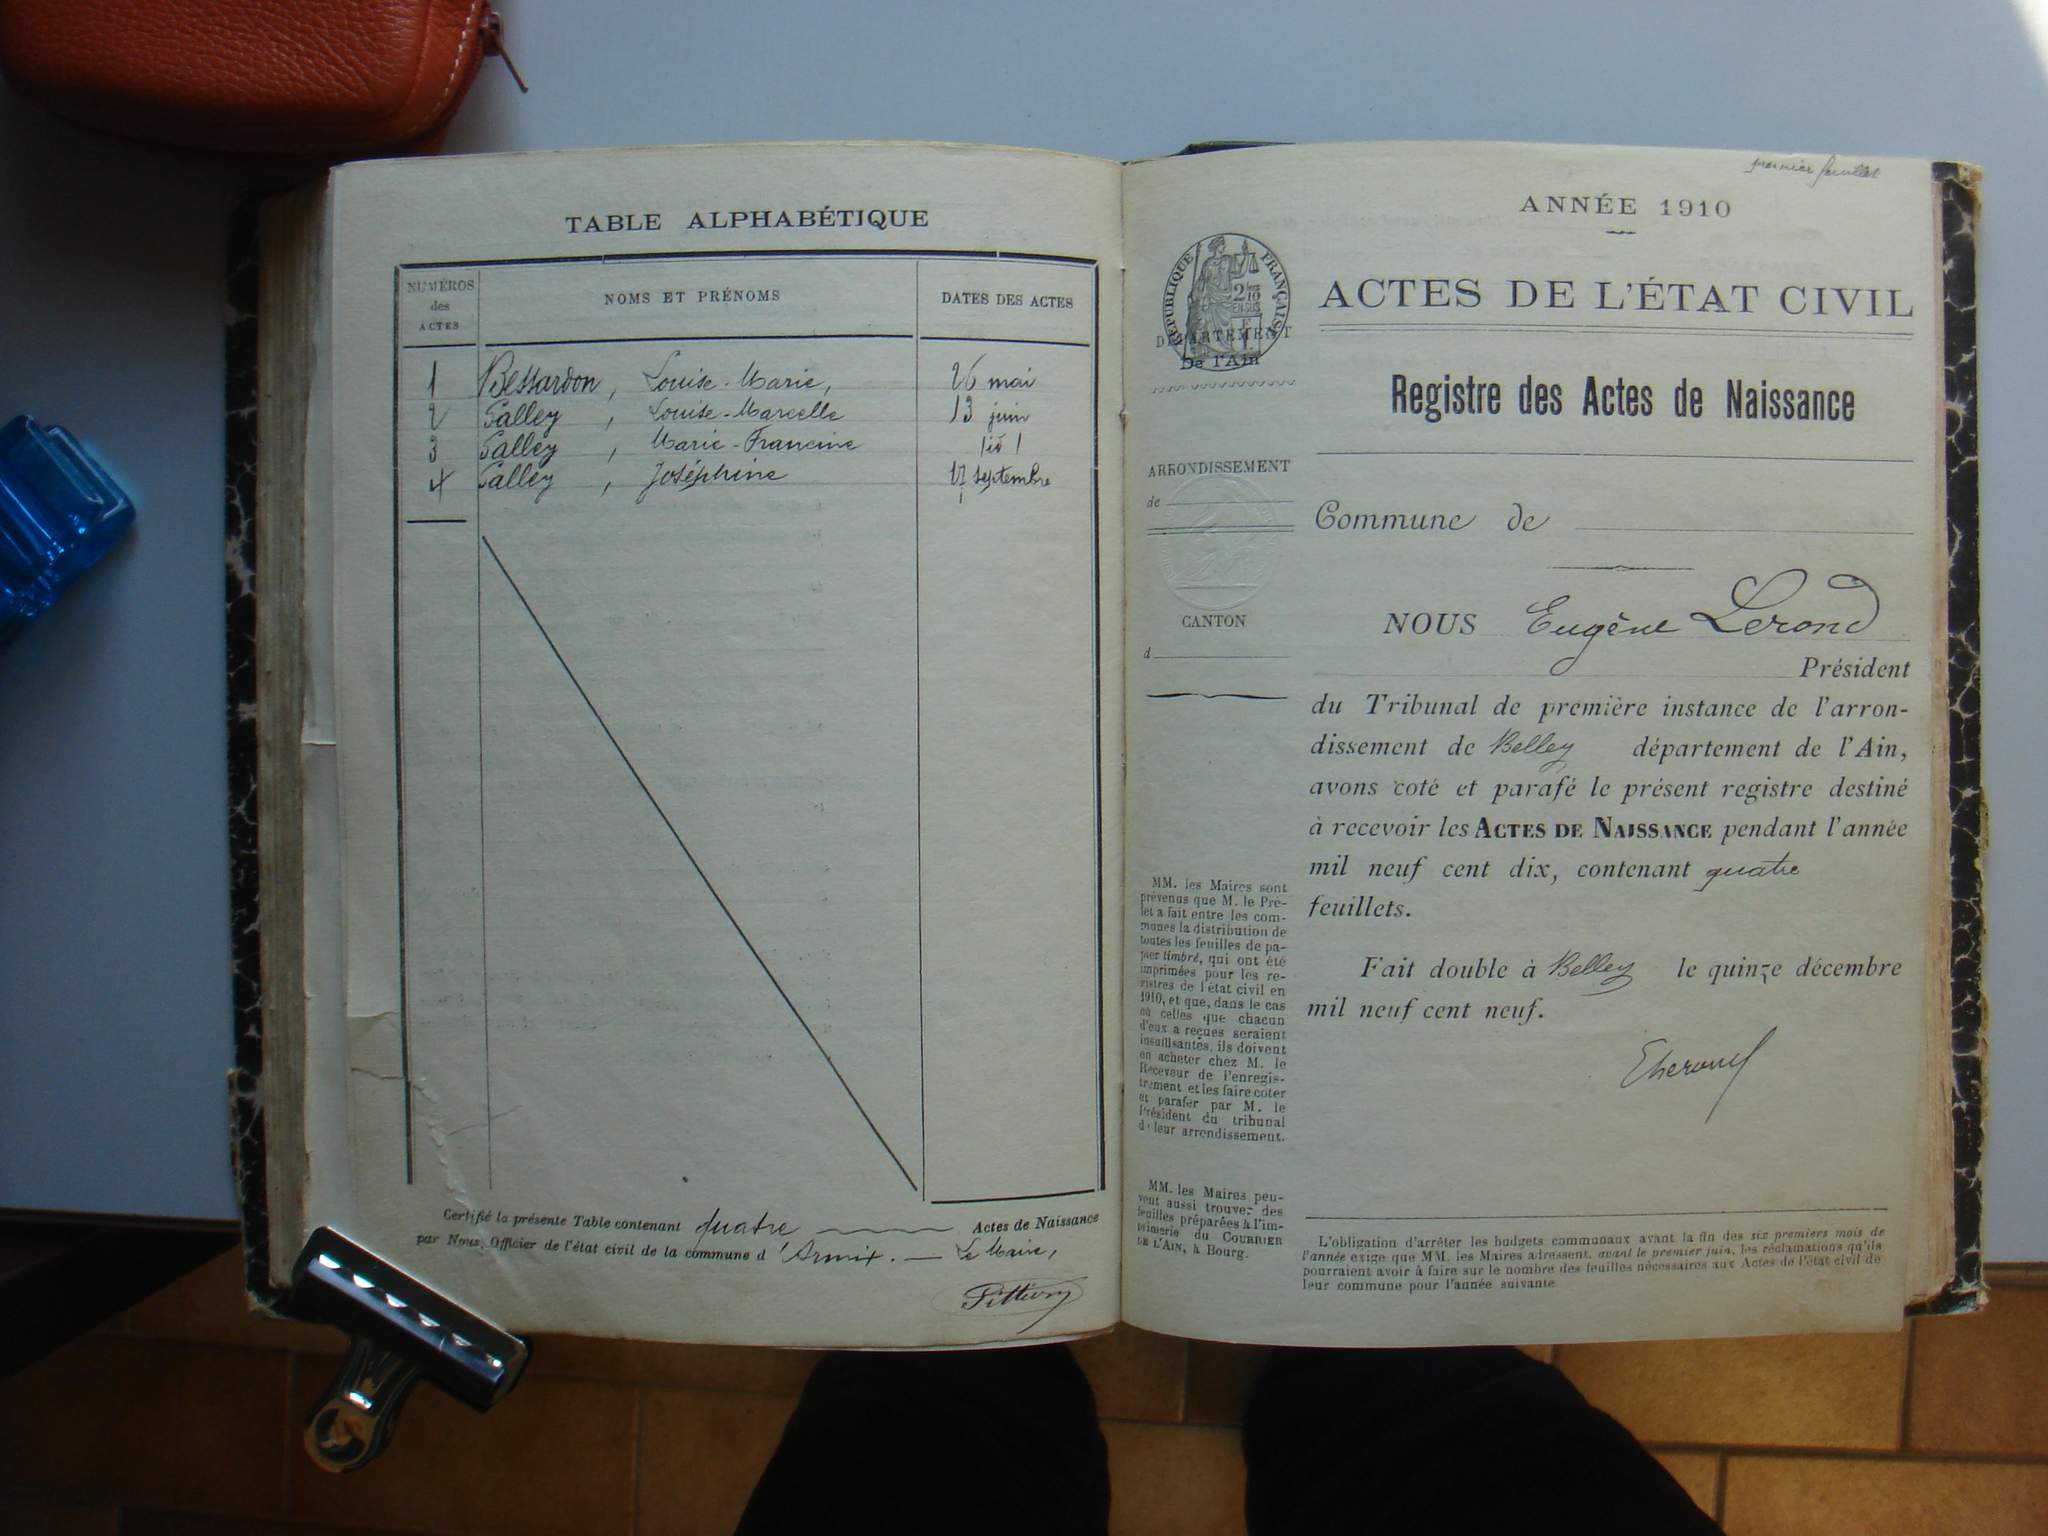 TABLE ALPHABÉTIQUE
NUMÉROS
des
ACTES
NOMS ET PRÉNOMS
DATES DES ACTES
1 Bessardon, Louise-Marie, 26 mai
2 Galley, Louise-Marcelle 13 juin
3 Galley, Marie-Francine
4 Galley, Joséphine 17 septembre
Certifié la présente Table contenant quatre Actes de Naissance
par Nous, Officier de l'état civil de la commune d'Armix. — Le Maire,
premier feuillet
ANNÉE 1910
RÉPUBLIQUE FRANÇAISE
2/10
EN SUS
DÉPARTEMENT
De l'Ain
ACTES DE L'ÉTAT CIVIL
Registre des Actes de Naissance
ARRONDISSEMENT
de
Commune de
CANTON
d
NOUS Eugène Lerond
Président
du Tribunal de première instance de l'arron-
dissement de Belley département de l'Ain,
avons coté et parafé le présent registre destiné
à recevoir les ACTES DE NAISSANCE pendant l'année
mil neuf cent dix, contenant quatre
feuillets.
Fait double à Belley le quinze décembre
mil neuf cent neuf.
MM. les Maires sont
prévenus que M. le Pré-
fet a fait entre les com-
munes la distribution de
toutes les feuilles de pa-
pier timbré, qui ont été
imprimées pour les re-
gistres de l'état civil en
1910, et que, dans le cas
où celles que chacun
d'eux a reçues seraient
insuffisantes, ils doivent
en acheter chez M. le
Receveur de l'enregis-
trement et les faire coter
et parafer par M. le
Président du tribunal
de leur arrondissement.
MM. les Maires peu-
vent aussi trouver des
feuilles préparées à l'im-
primerie du COURRIER
DE L'AIN, à Bourg.
L'obligation d'arrêter les budgets communaux avant la fin des six premiers mois de
l'année exige que MM. les Maires adressent, avant le premier juin, les réclamations qu'ils
pourraient avoir à faire sur le nombre des feuilles nécessaires aux Actes de l'état civil de
leur commune pour l'année suivante